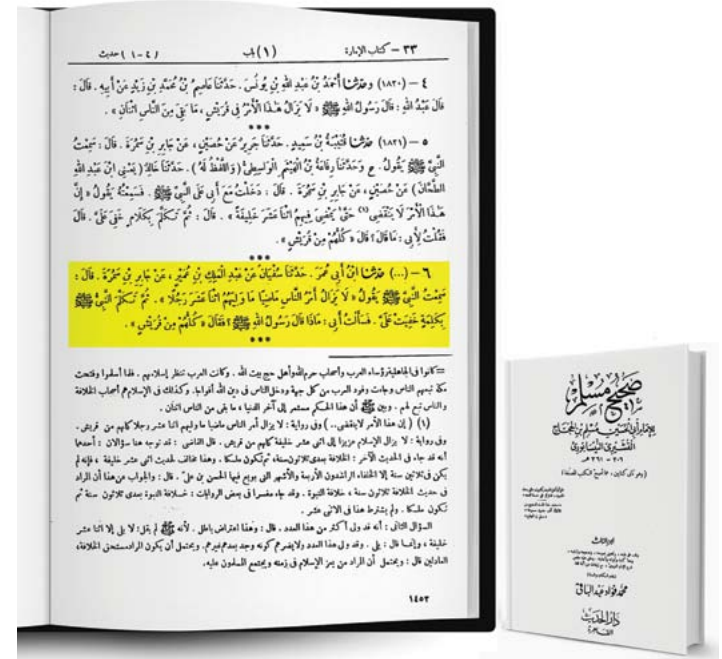 ٣٣ – كتاب الإمارة (١) باب (١-٤) حديث
٤ – (١٨٢٠) وحدثنا أَحْمَدُ بْنُ عَبْدِ اللهِ بْنِ يُونُسَ . حَدَّثَنَا عَاصِمُ بْنُ مُحَمَّدِ بْنِ زَيْدٍ عَنْ أَبِيهِ . قَالَ :
قَالَ عَبْدُ اللهِ : قَالَ رَسُولُ اللهِ ﷺ « لَا يَزَالُ هَٰذَا الْأَمْرُ فِي قُرَيْشٍ ، مَا بَقِيَ مِنَ النَّاسِ اثْنَانِ » .
***
٥ – (١٨٢١) حدثنا قُتَيْبَةُ بْنُ سَعِيدٍ . حَدَّثَنَا جَرِيرٌ عَنْ حُصَيْنٍ ، عَنْ جَابِرِ بْنِ سَمُرَةَ . قَالَ : سَمِعْتُ
النَّبِيَّ ﷺ يَقُولُ . ح وَحَدَّثَنَا رِفَاعَةُ بْنُ الْهَيْثَمِ الْوَاسِطِيُّ ( وَاللَّفْظُ لَهُ ) . حَدَّثَنَا خَالِدٌ ( يَعْنِي ابْنَ عَبْدِ اللهِ
الطَّحَّانَ ) عَنْ حُصَيْنٍ ، عَنْ جَابِرِ بْنِ سَمُرَةَ . قَالَ : دَخَلْتُ مَعَ أَبِي عَلَى النَّبِيِّ ﷺ . فَسَمِعْتُهُ يَقُولُ « إِنَّ
هَٰذَا الْأَمْرَ لَا يَنْقَضِي (١) حَتَّىٰ يَمْضِيَ فِيهِمُ اثْنَا عَشَرَ خَلِيفَةً » . قَالَ : ثُمَّ تَكَلَّمَ بِكَلَامٍ خَفِيَ عَلَيَّ . قَالَ
فَقُلْتُ لِأَبِي : مَا قَالَ ؟ قَالَ « كُلُّهُمْ مِنْ قُرَيْشٍ » .
***
٦ – (...) حدثنا ابْنُ أَبِي عُمَرَ . حَدَّثَنَا سُفْيَانُ عَنْ عَبْدِ الْمَلِكِ بْنِ عُمَيْرٍ ، عَنْ جَابِرِ بْنِ سَمُرَةَ . قَالَ :
سَمِعْتُ النَّبِيَّ ﷺ يَقُولُ « لَا يَزَالُ أَمْرُ النَّاسِ مَاضِيًا مَا وَلِيَهُمُ اثْنَا عَشَرَ رَجُلًا » . ثُمَّ تَكَلَّمَ النَّبِيُّ ﷺ
بِكَلِمَةٍ خَفِيَتْ عَلَيَّ . فَسَأَلْتُ أَبِي : مَاذَا قَالَ رَسُولُ اللهِ ﷺ ؟ فَقَالَ « كُلُّهُمْ مِنْ قُرَيْشٍ » .
= كانوا في الجاهلية رؤساء العرب وأصحاب حرم الله وأهل حج بيت الله . وكانت العرب تنظر إسلامهم . فلما أسلموا وفتحت
مكة تبعهم الناس وجاءت وفود العرب من كل جهة ودخل الناس في دين الله أفواجا . وكذلك في الإسلام هم أصحاب الخلافة
والناس تبع لهم . وبين ﷺ أن هذا الحكم مستمر إلى آخر الدنيا ، ما بقي من الناس اثنان .
(١) ( إن هذا الأمر لا ينقضي.. ) وفي رواية : لا يزال أمر الناس ماضيا ما وليهم اثنا عشر رجلا كلهم من قريش .
وفي رواية : لا يزال الإسلام عزيزا إلى اثني عشر خليفة كلهم من قريش . قال القاضي : قد توجه هنا سؤالان : أحدهما
أنه قد جاء في الحديث الآخر : الخلافة بعدي ثلاثون سنة ، ثم تكون ملكا . وهذا مخالف لحديث اثني عشر خليفة ، فإنه لم
يكن في ثلاثين سنة إلا الخلفاء الراشدون الأربعة والأشهر التي بويع فيها الحسن بن علي . قال : والجواب عن هذا أن المراد
في حديث الخلافة ثلاثون سنة ، خلافة النبوة . وقد جاء مفسرا في بعض الروايات : خلافة النبوة بعدي ثلاثون سنة ثم
تكون ملكا . ولم يشترط هذا في الاثني عشر .
السؤال الثاني : أنه قد ولي أكثر من هذا العدد . قال : وهذا اعتراض باطل . لأنه ﷺ لم يقل : لا يلي إلا اثنا عشر
خليفة ، وإنما قال : يلي . وقد ولي هذا العدد ولا يضرهم كونه وجد بعدهم غيرهم . ويحتمل أن يكون المراد مستحق الخلافة
العادلين قال : ويحتمل أن المراد من يعز الإسلام في زمنه ويجتمع المسلمون عليه.
١٤٥٢
صحيح مسلم
للإمام أبي الحسين مسلم بن الحجاج
القشيري النيسابوري
٢٠٦ – ٢٦١ هـ
محمد فؤاد عبد الباقي
دار الحديث
القاهرة